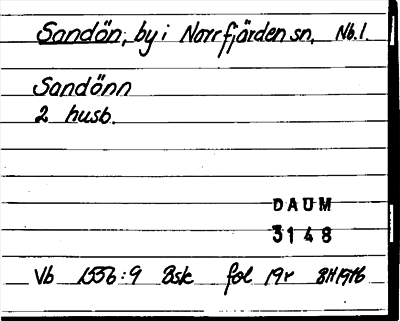 Sandön, by i Norrfjärden sn, Nb.l.
Sandönn
2 husb.
DAUM
3148
Vb 1556:9 Bsk fol 19r